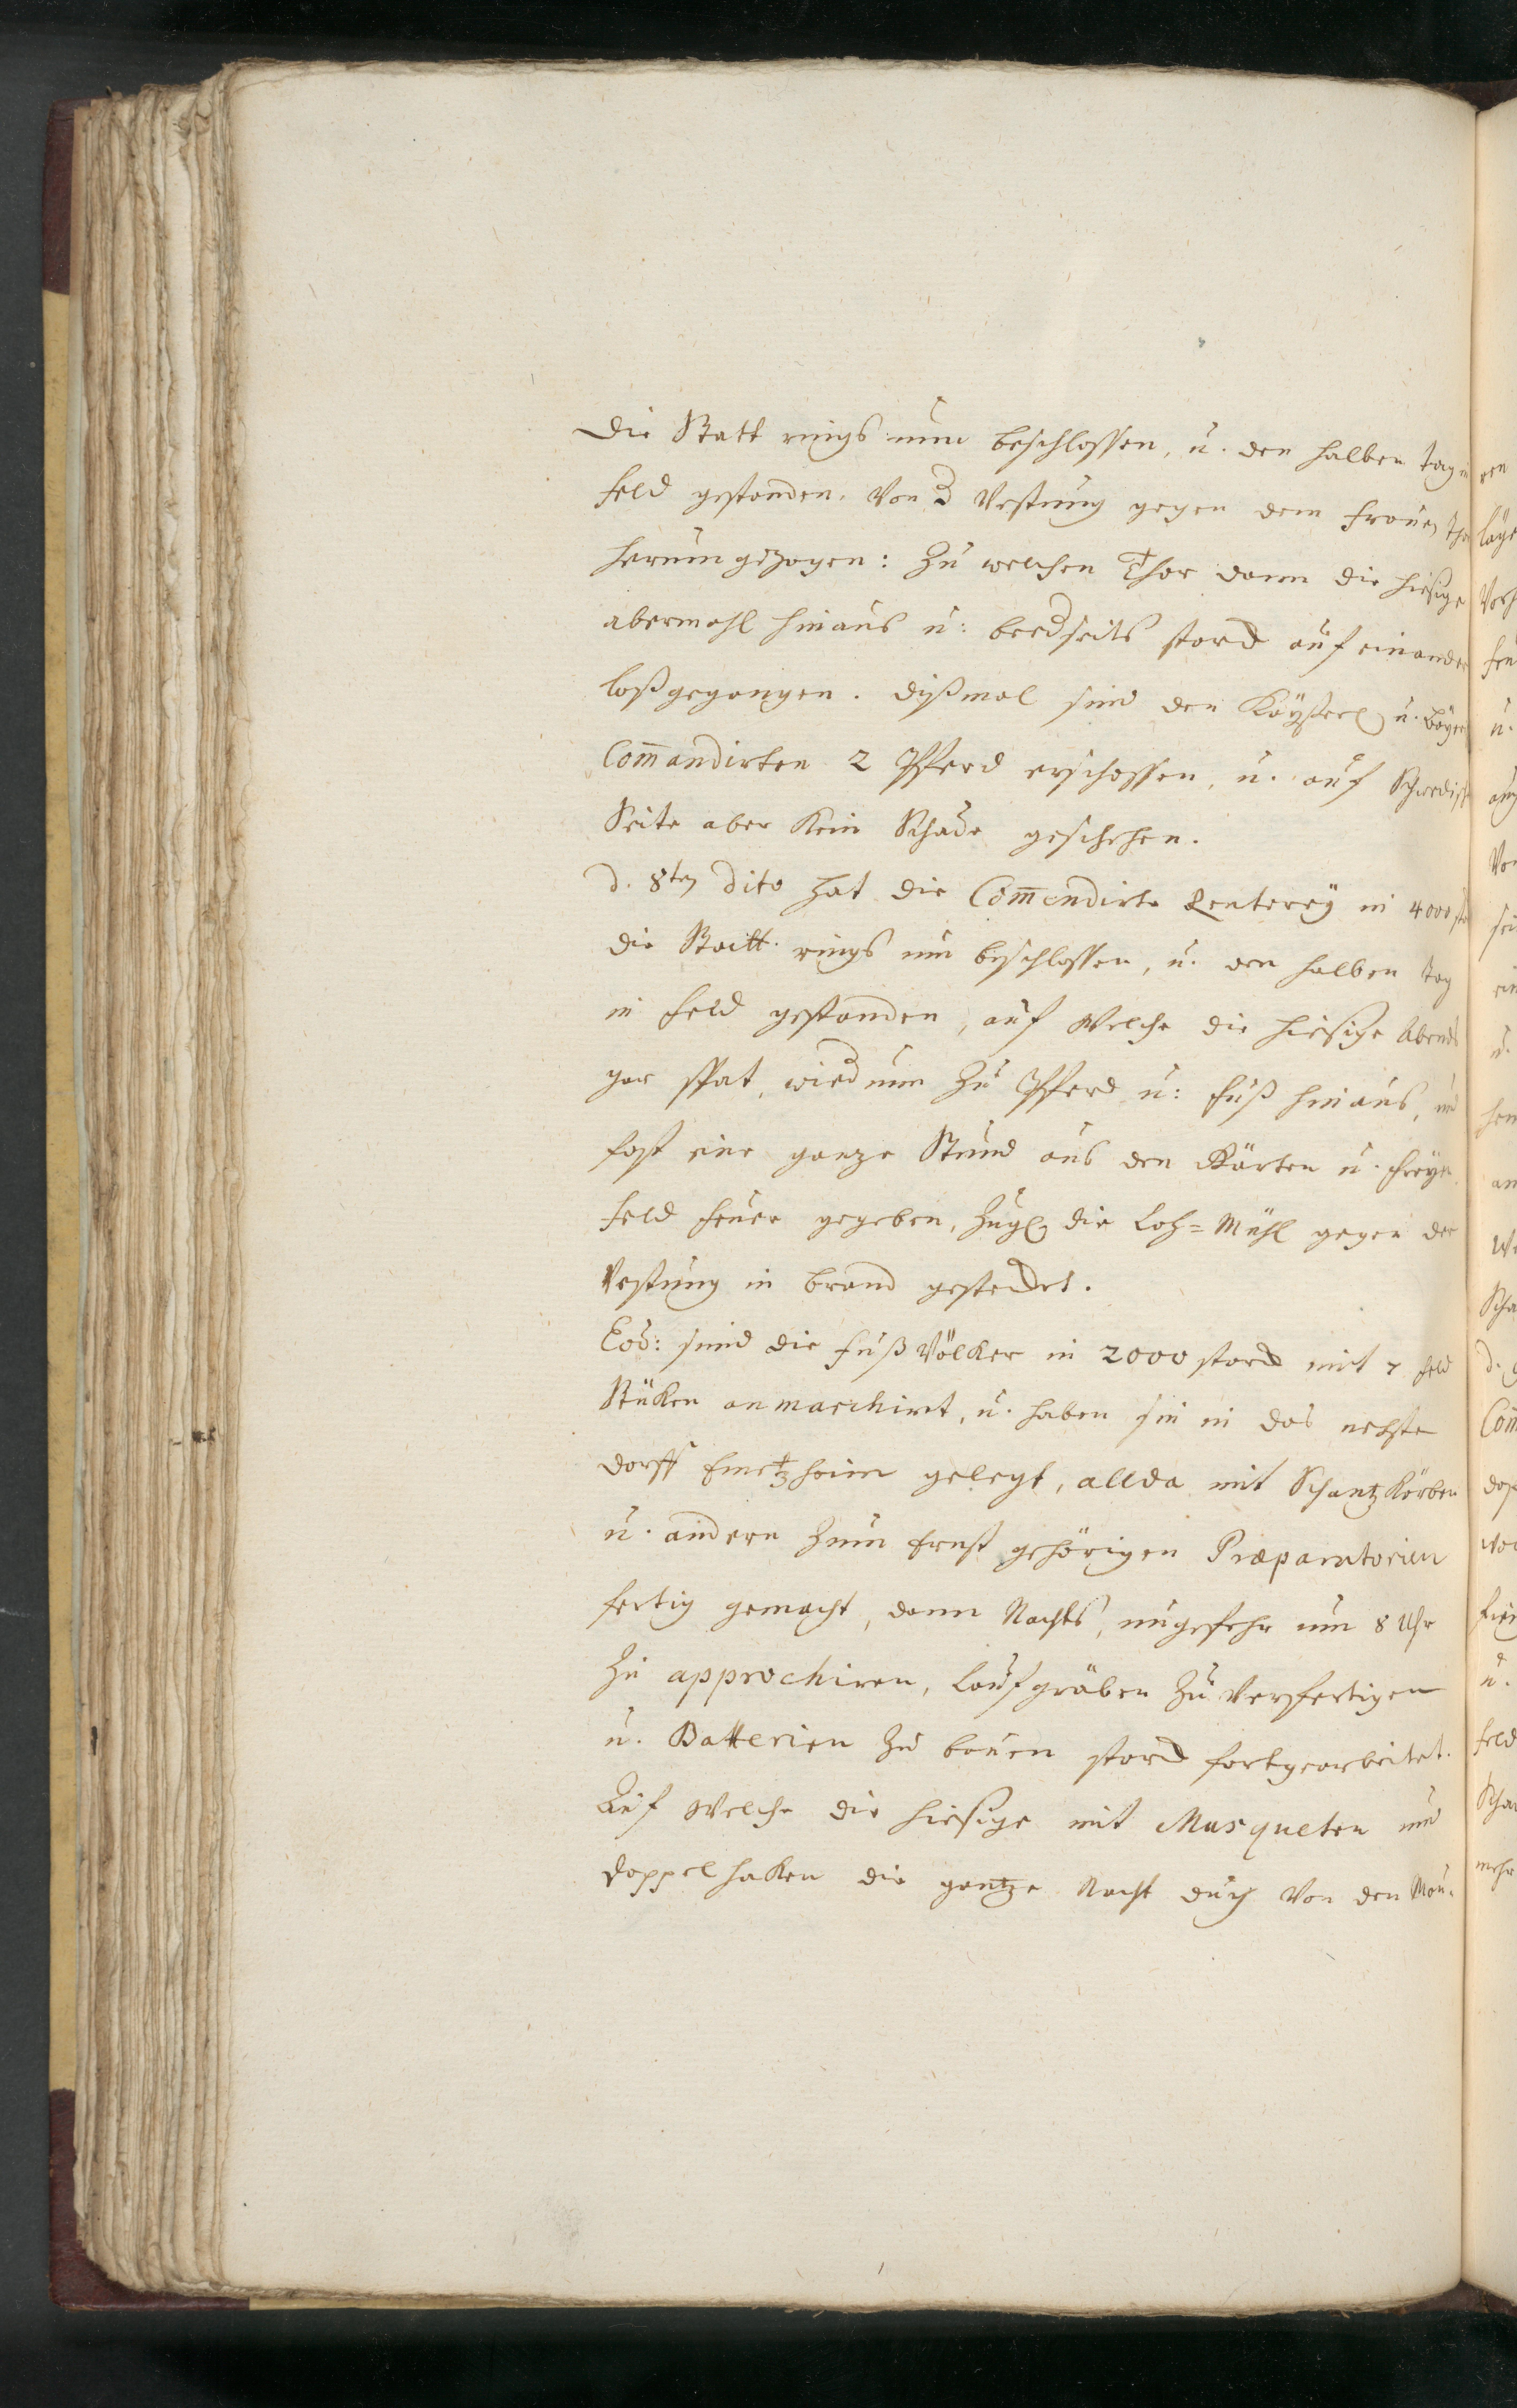 Die Statt rings umm beschlossen, u. den halben Tag
Feld gestanden. Von d Vestung gegen dem Frauen Tho
herumgezogen: Zu welchen Thor dann die hiesige
abermahl hinaus u: beedseits starck auf einander
loßgegangen. Dißmal sind den Käyserl u. Bayer
Com̄andirten 2 Pferd erschossen, u. auf Schwedisch
Seite aber Kein Schade geschehen.
d. 8ten dito hat die Com̄endirte Reuterey in 4000 st
die Statt rings um beschlossen, u. den halben Tag
in Feld gestanden, auf Welche die hiesige Abends
gar spat, widumm Zu Pferd u: Fuß hinaus, und
fast eine ganze Stund aus den Gärten u. Freyen
Feld Feuer gegeben, Zugl die Loh=Mühl gegen der
Vestung in brand gestecket.
Eod: sind die Fuß Völcker in 2000 starck mit 7 Feld
Stüken anmarchirt, u. haben sie in das nehste
Dorff Emetzheim gelegt, allda mit Schantz Körben
u. andern Zum Ernst gehörigen Præparatorien
fertig gemacht, dann Nachts, ungefehr um 8 Uhr
Zu approchiren, Laufgräben Zu Verfertigen
u. Batterien Zu bauen starck fortgearbeitet.
Auf Welche die hiesige mit Musqueten und
Doppelhaken die gantze Nacht durch Von den Mau-